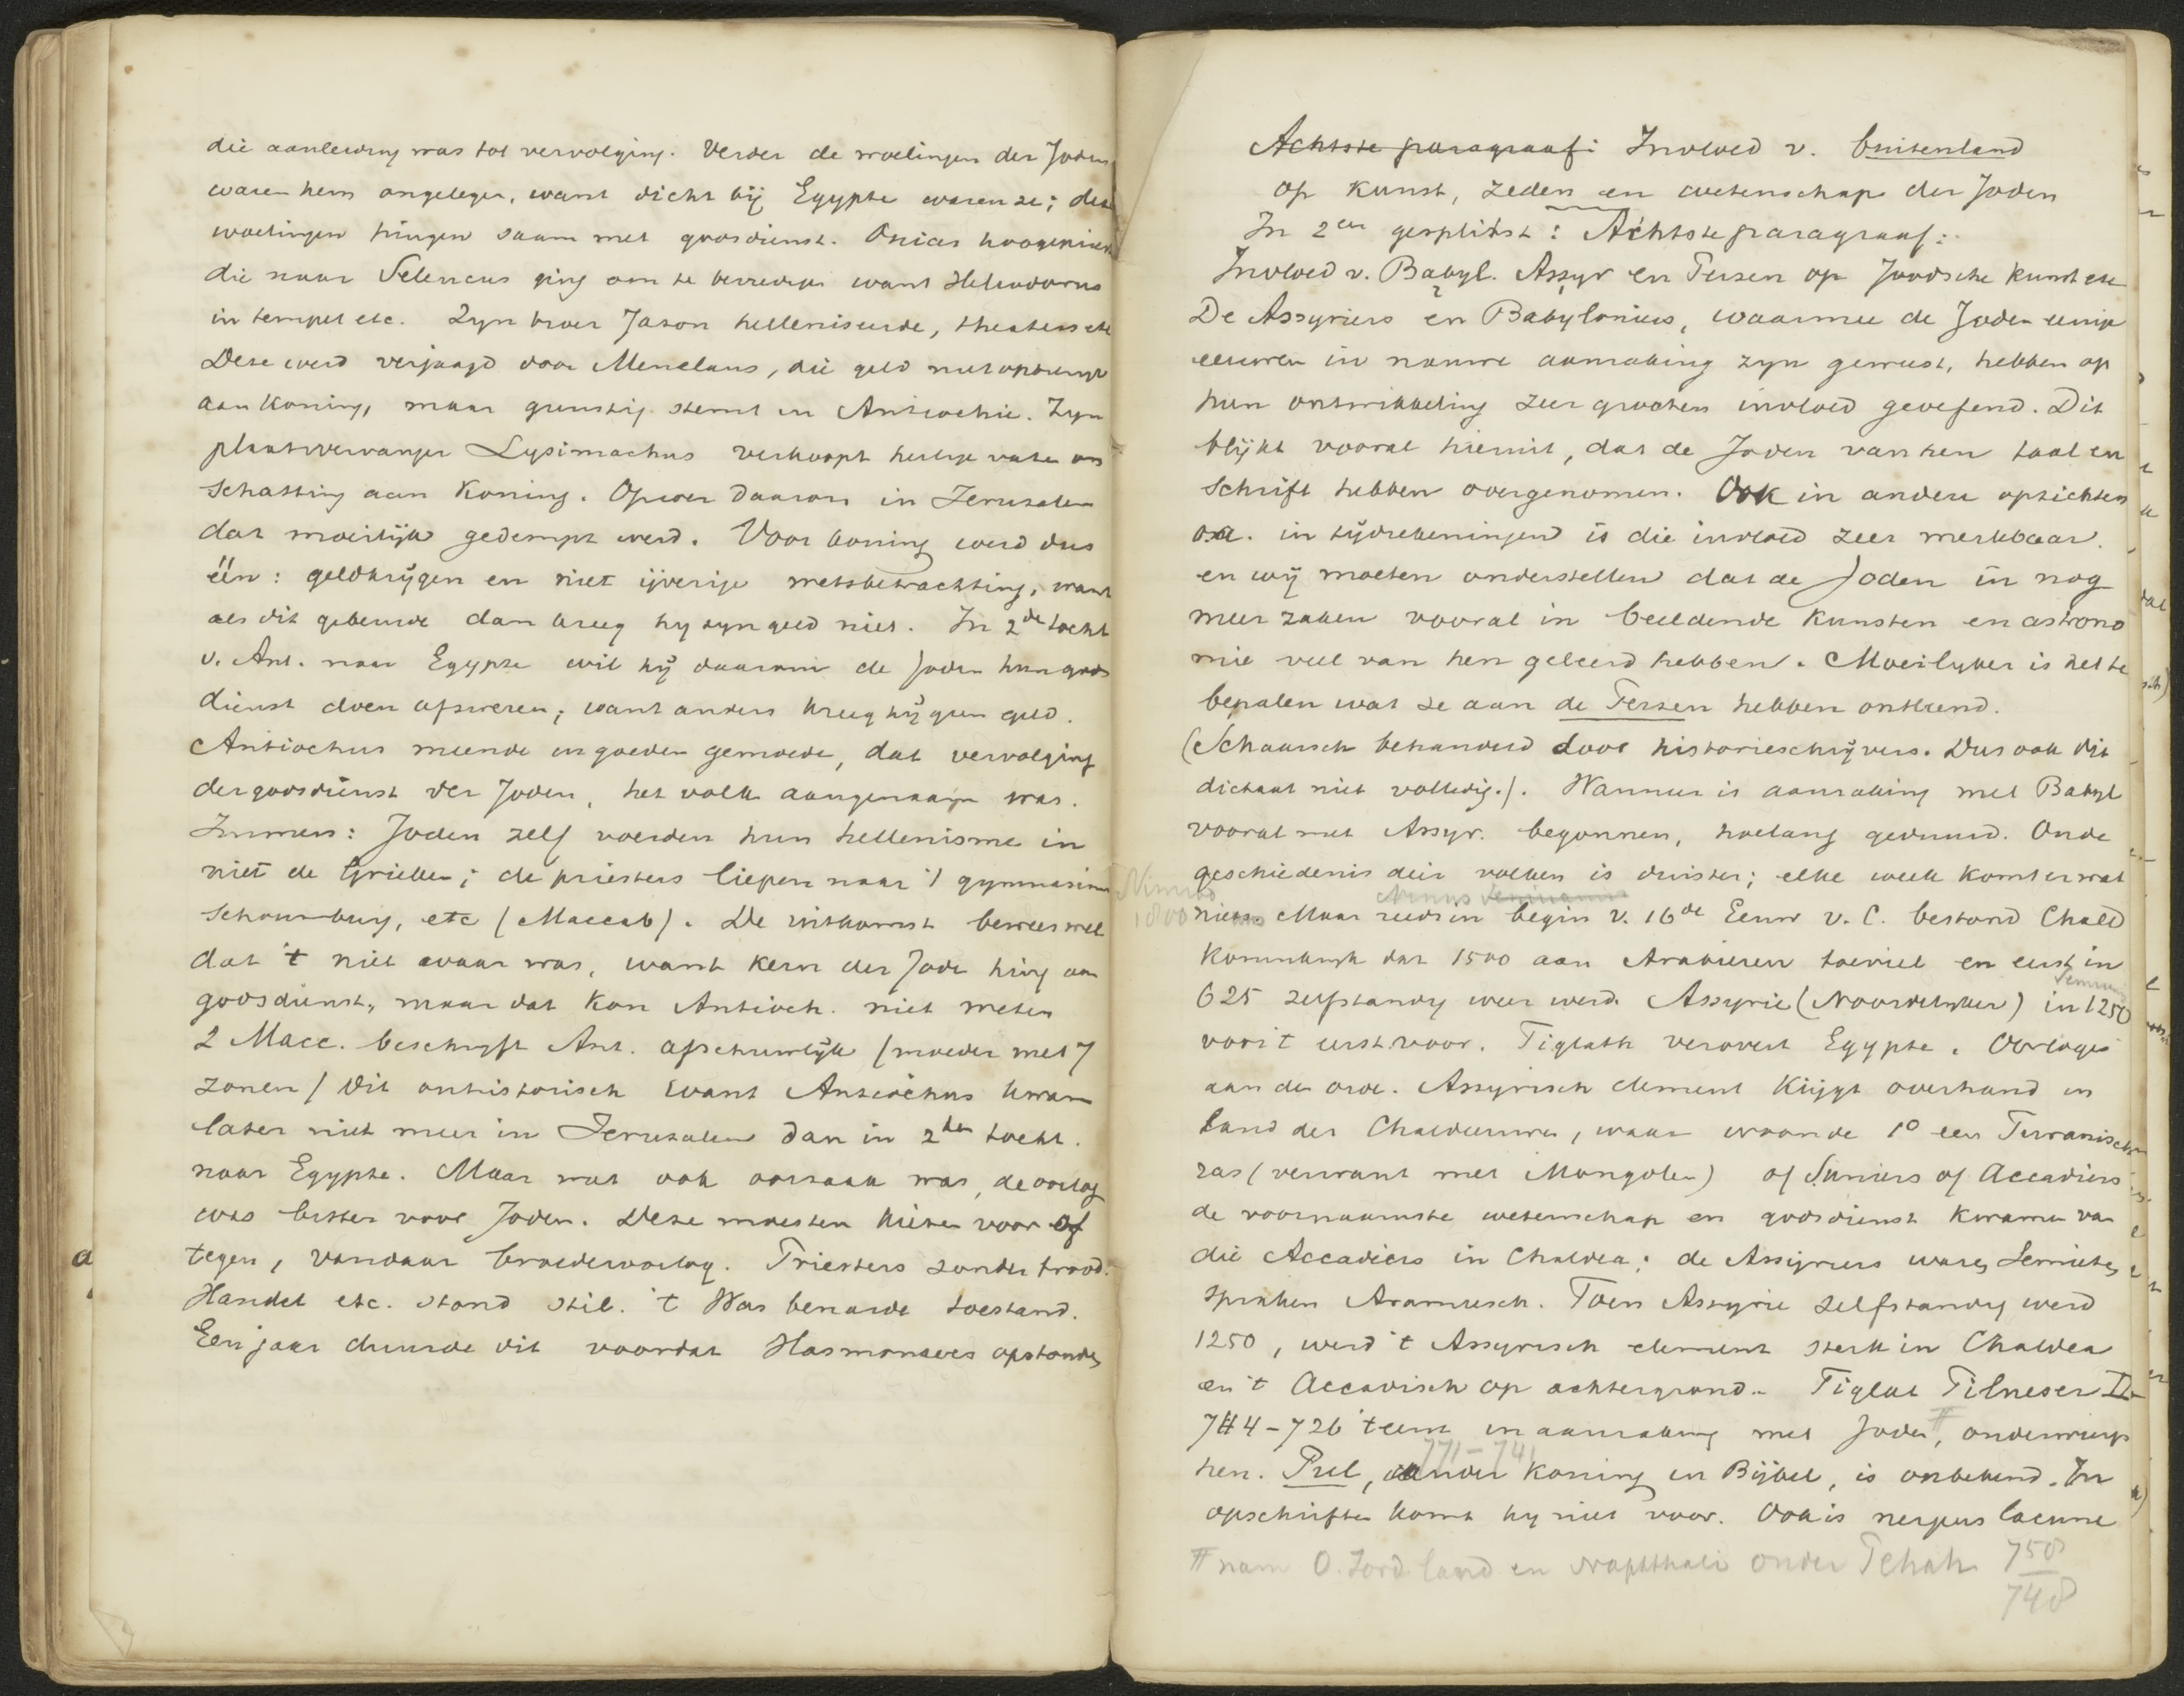 die aanleiding was tot vervolging. Verder de woelingen der Joden
waren hem ongelegen, want dicht bij Egypte waren ze; deze
woelingen hingen saam met godsdienst. Onias hoogepriest
die naar Seleucus ging om te bevredigen want Heliodorus
in tempel etc. Zyn broer Jason helleniseerde, theaters etc
Deze werd verjaagd door Menelaus, die geld niet opbrengt
aan Koning, maar gunstig stemt in Antiochie. Zyn
plaatsvervanger Lysimachus verkoopt heilige vaten om
schatting aan Koning. Oproer daarom in Jerusalem
dat moeilijk gedempt werd. Voor koning werd dus
één: geldkrijgen en niet ijverige wetsbetrachting, want
als dit gebeurde dan kreeg hy zyn geld niet. In 2de tocht
v. Ant. naar Egypte wil hij daarom de Joden hun gods
dienst doen afzweren; want anders kreeg hij geen geld.
Antiochus meende in goeden gemoede, dat vervolging
der godsdienst der Joden, het volk aangenaam was.
Immers: Joden zelf voerden hun hellenisme in
niet de Grieken; de priesters liepen naar 't gymnasium
schouwburg, etc (Maccab). De uitkomst bewees wel
dat 't niet waar was, want kern der Joden hing aan
godsdienst, maar dat kon Antioch. niet weten
2 Macc. beschryft Ant. afschuwlijk (moeder met 7
zonen) Dit onhistorisch want Antiochus kwam
later niet meer in Jerusalem dan in 2den tocht.
naar Egypte. Maar wat ook oorzaak was, de oorlog
was bitter voor Joden. Deze moesten kiezen voor of
tegen, vandaar broederoorlog. Priesters zonder brood.
Handel etc. stond stil. 't Was benarde toestand.
Een jaar duurde dit voordat Hasmonaeers opstonden
Achtste paragraaf: Invloed v. buitenland
op kunst, zeden en wetenschap der Joden
In 2en gesplitst: Achtste paragraaf:
Invloed v. Babyl. Assyr en Perzen op Joodsche kunst etc
De Assyriers en Babyloniers, waarmee de Joden eenige
eeuwen in nauwe aanraking zyn geweest, hebben op
hun ontwikkeling zeer grooten invloed geoefend. Dit
blijkt vooral hieruit, dat de Joden van hen taal en
schrift hebben overgenomen. Ook in andere opzichten
o.a. in tijdrekeningen is die invloed zeer merkbaar.
en wij moeten onderstellen dat de Joden in nog
meer zaken vooral in beeldende kunsten en astrono
mie veel van hen geleerd hebben. Moeilyker is het te
bepalen wat ze aan de Perzen hebben ontleend.
(Schaarsch behandeld door historieschrijvers. Dus ook dit
dictaat niet volledig.). Wanneer is aanraking met Babyl
vooral met Assyr. begonnen, hoelang geduurd. Oude
geschiedenis deir volken is duister; elke week komt er wat
Ninus
nieuws. Maar reeds in begin v. 16de Eeuw v. C. bestond Chald
Koninkryk dat 1500 aan Arabieren toeviel en eerst in
625 zelfstandig weer werd. Assyrie (Noordelyker) in 1250
voor 't eerst voor. Tiglath verovert Egypte. Oorlogen
aan de orde. Assyrisch element krijgt overhand in
land der Chaldeeuwen, waar woonde 1o een Turanisch
ras (verwant met Mongolen) of Sumiers of Accadiers
de voornaamste wetenschap en godsdienst kwamen van
die Accadiers in Chaldea; de Assyriers waren Semieten
spraken Arameesch. Toen Assyrie zelfstandig werd
1250, werd 't Assyrisch element sterk in Chaldea
en 't Accadisch op achtergrond. Tiglat Pilneser II
744-726 't eerst in aanraking met Joden #, onderwierp
771-741
hen. Pul, ander koning in Bijbel, is onbekend. In
opschriften komt hy niet voor. Ook is nergens lacune
# nam O. Jord land en Naphthali onder Pekah 758
748